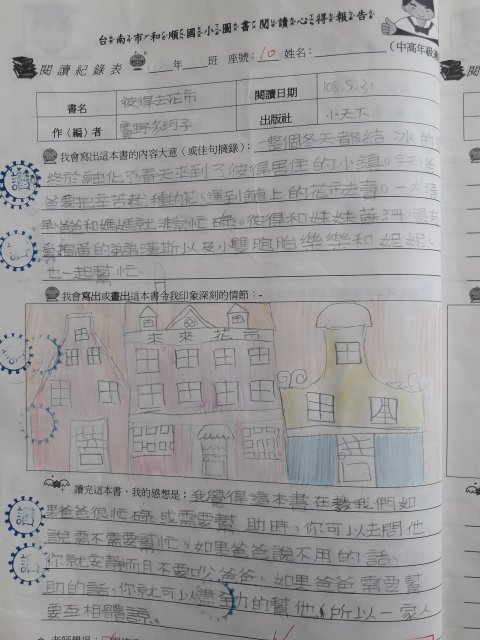 台南市和順國小圖書閱讀心得報告
閱讀紀錄表 年 班 座號：10 姓名： （中高年級
書名 彼得去花市 閱讀日期 105.5.31
作（編）者 雷野多珂子 出版社 小天下
我會寫出這本書的內容大意（或佳句摘錄）：一整個冬天都結冰的
終於融化了春天來到了彼得居住的小鎮。今天爸
爸要把辛苦栽種的花，運到鎮上的花市去賣。一大清
早，爸爸和媽媽就非常忙碌。彼得和妹妹 還有
愛搗蛋的弟弟漢斯以及小雙胞胎樂樂和妮妮、
也一起幫忙。
我會寫出或畫出這本書令我印象深刻的情節：
來來花市
讀完這本書，我的感想是：我覺得這本書在教我們如
果爸爸很忙碌或需要幫助時，你可以去問他
說需不需要幫忙，如果爸爸說不用的話、
你就安靜而且不要吵爸爸、如果爸爸需要幫
助的話，你就可以盡全力的幫他，所以一家人
要互相體諒。
老師覺得：